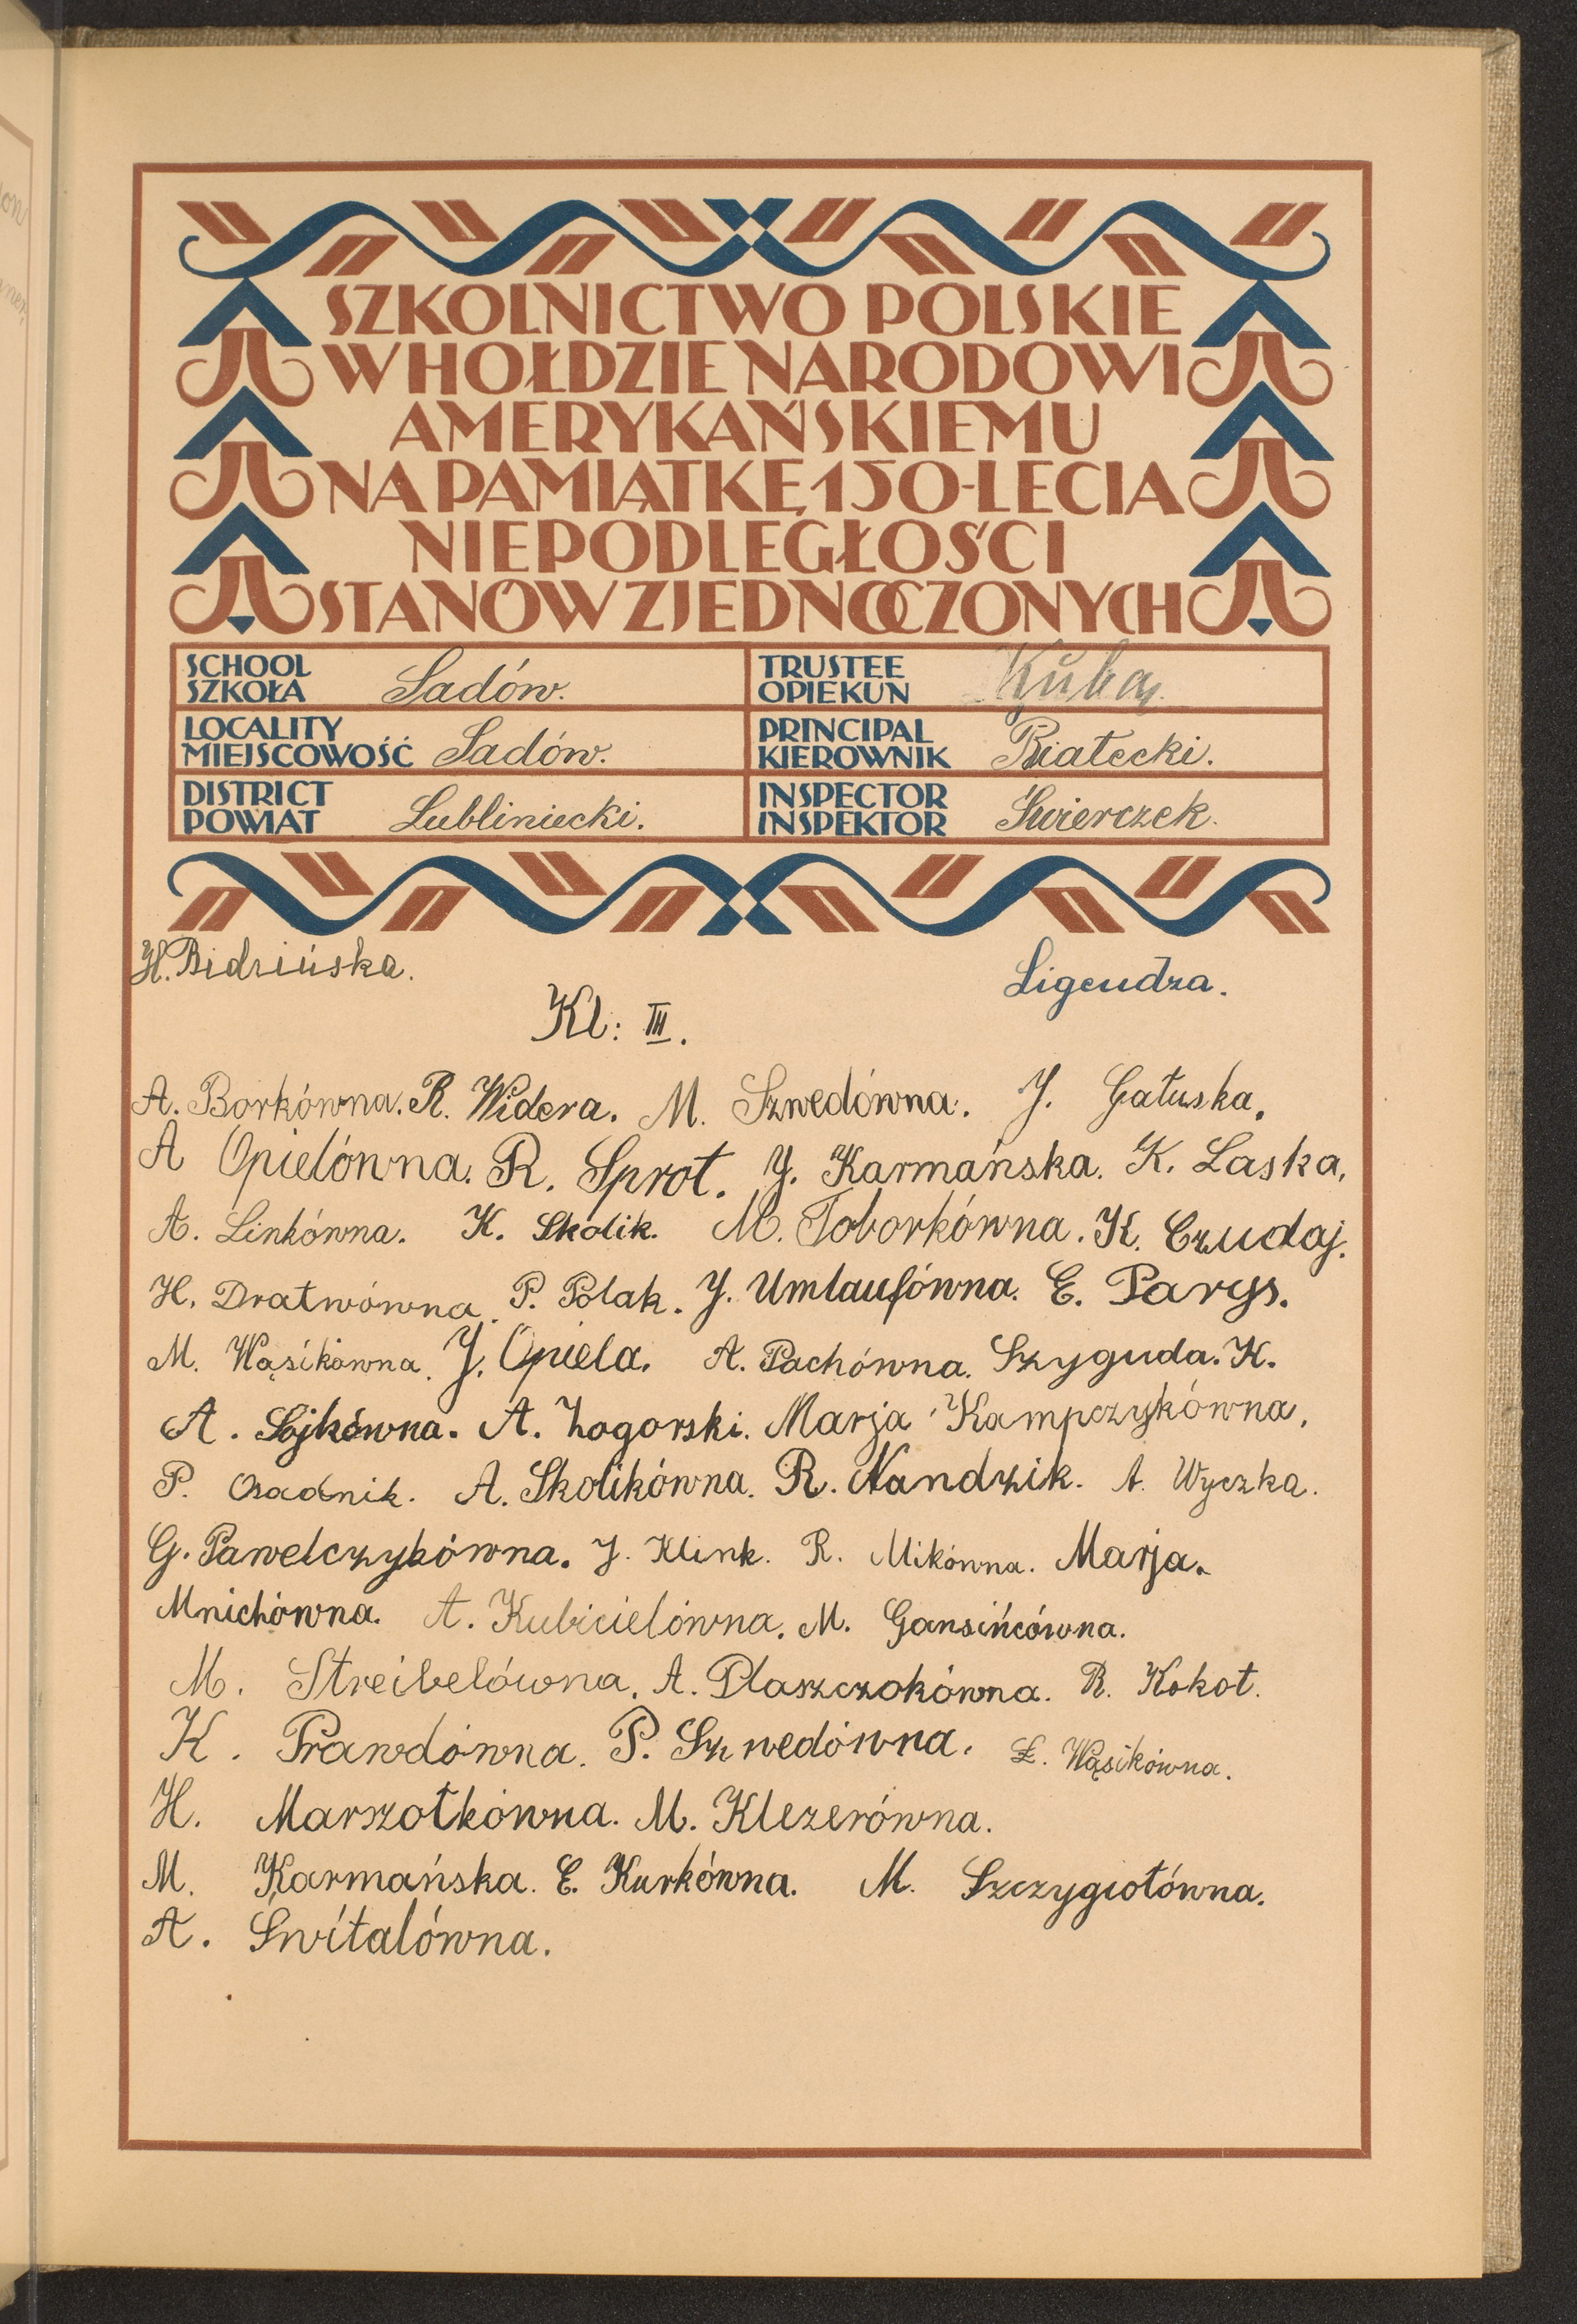 SZKOLNICTWO POLSKIE
W HOŁDZIE NARODOWI
AMERYKAŃSKIEMU
NA PAMIĄTKĘ 150-LECIA
NIEPODLEGŁOŚCI
STANÓW ZJEDNOCZONYCH
SCHOOL
SZKOŁA Sadów.
TRUSTEE
OPIEKUN
LOCALITY
MIEJSCOWOŚĆ Sadów.
PRINCIPAL
KIEROWNIK Białecki.
DISTRICT
POWIAT Lubliniecki.
INSPECTOR
INSPEKTOR Świerczek.
H. Bidzińska. Ligendza.
Kl: III.
A. Borkówna. R. Widera. M. Szwedówna. J. Gałuska.
A Opielówna. R. Sprot. J. Karmańska. K. Laska.
A. Linkówna. K. Skolik. M. Toborkówna. K. Czudaj.
H. Dratwówna. P. Polak. J. Umlaufówna. E. Parys.
M. Wąsikówna. J. Opiela. A. Pachówna. Szyguda. K.
A. Sojkówna. A. Zogorski. Marja Kampczykówna.
P. Osadnik. A. Skolikówna. R. Nandzik. A. Wyczka.
G. Pawelczykówna. J. Klink. R. Mikówna. Marja.
Mnichówna. A. Kubicielówna. M. Gansińcówna.
M. Streibelówna. A. Płaszczokówna. R. Kokot.
K. Prawdówna. P. Szwedówna. Ł. Wąsikówna.
H. Marszołkówna. M. Klezerówna.
M. Karmańska. E. Kurkówna. M. Szczygiołówna.
A. Switalówna.